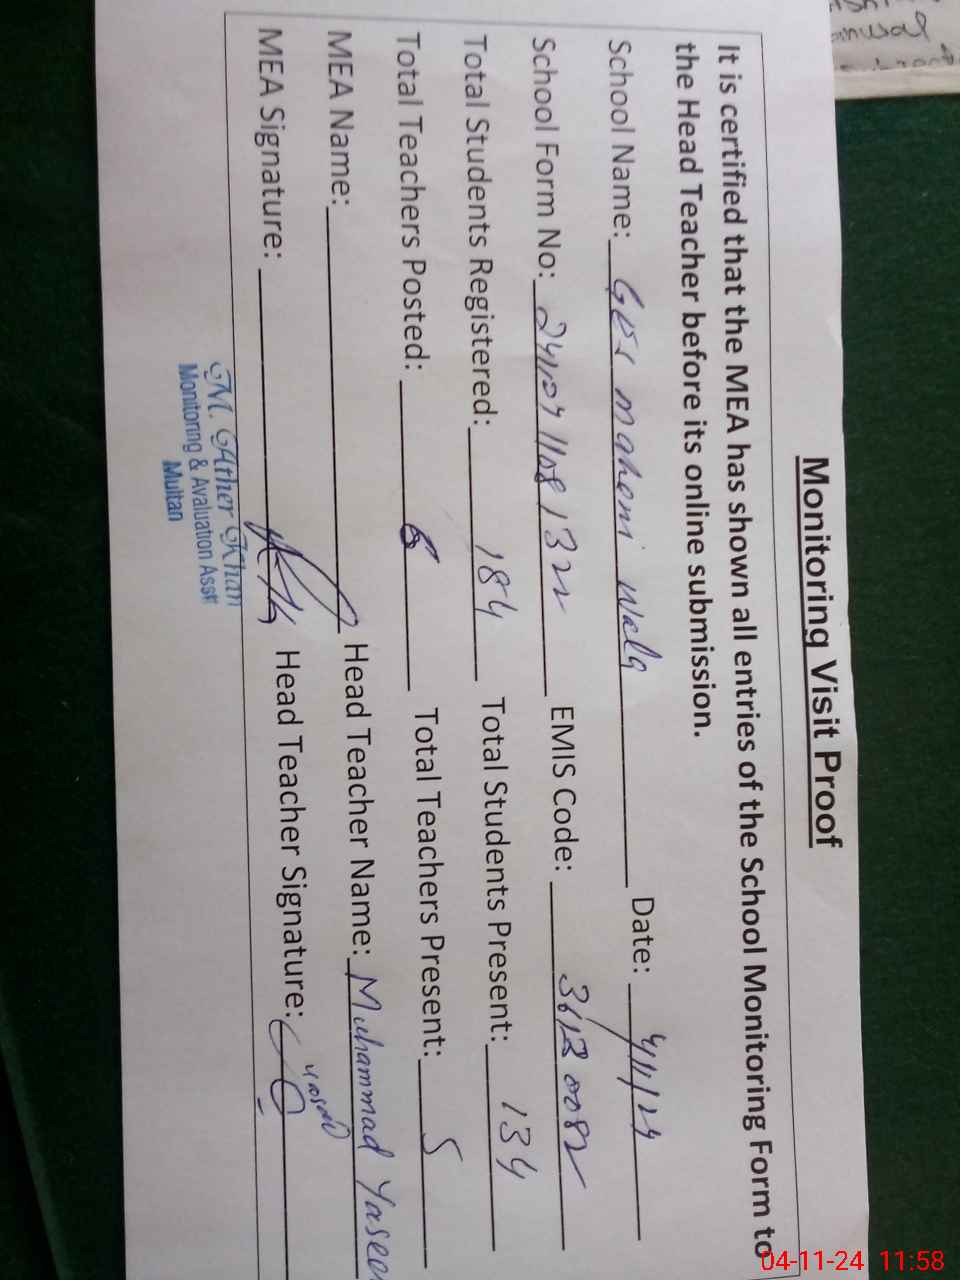 Monitoring Visit Proof
It is certified that the MEA has shown all entries of the School Monitoring Form to
the Head Teacher before its online submission.
School Name: GES maheni wala Date: 4/11/24
School Form No: EMIS Code: 36130082
Total Students Registered: 184 Total Students Present: 134
Total Teachers Posted: 6 Total Teachers Present: 5
MEA Name: Head Teacher Name: Muhammad Yaseen
MEA Signature: Head Teacher Signature:
M. Ather Khan
Monitoring & Avaluation Asstt
Multan
04-11-24 11:58